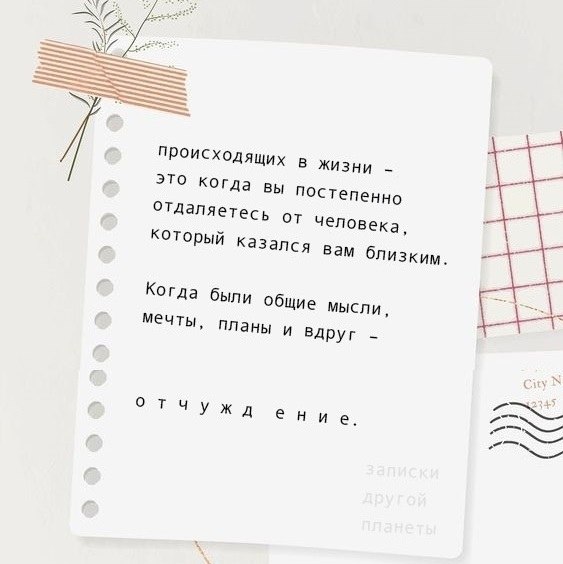 происходящих в жизни –
это когда вы постепенно
отдаляетесь от человека,
который казался вам близким.
Когда были общие мысли,
мечты, планы и вдруг –
о т ч у ж д е н и е.
записки
другой
планеты
City N
12345